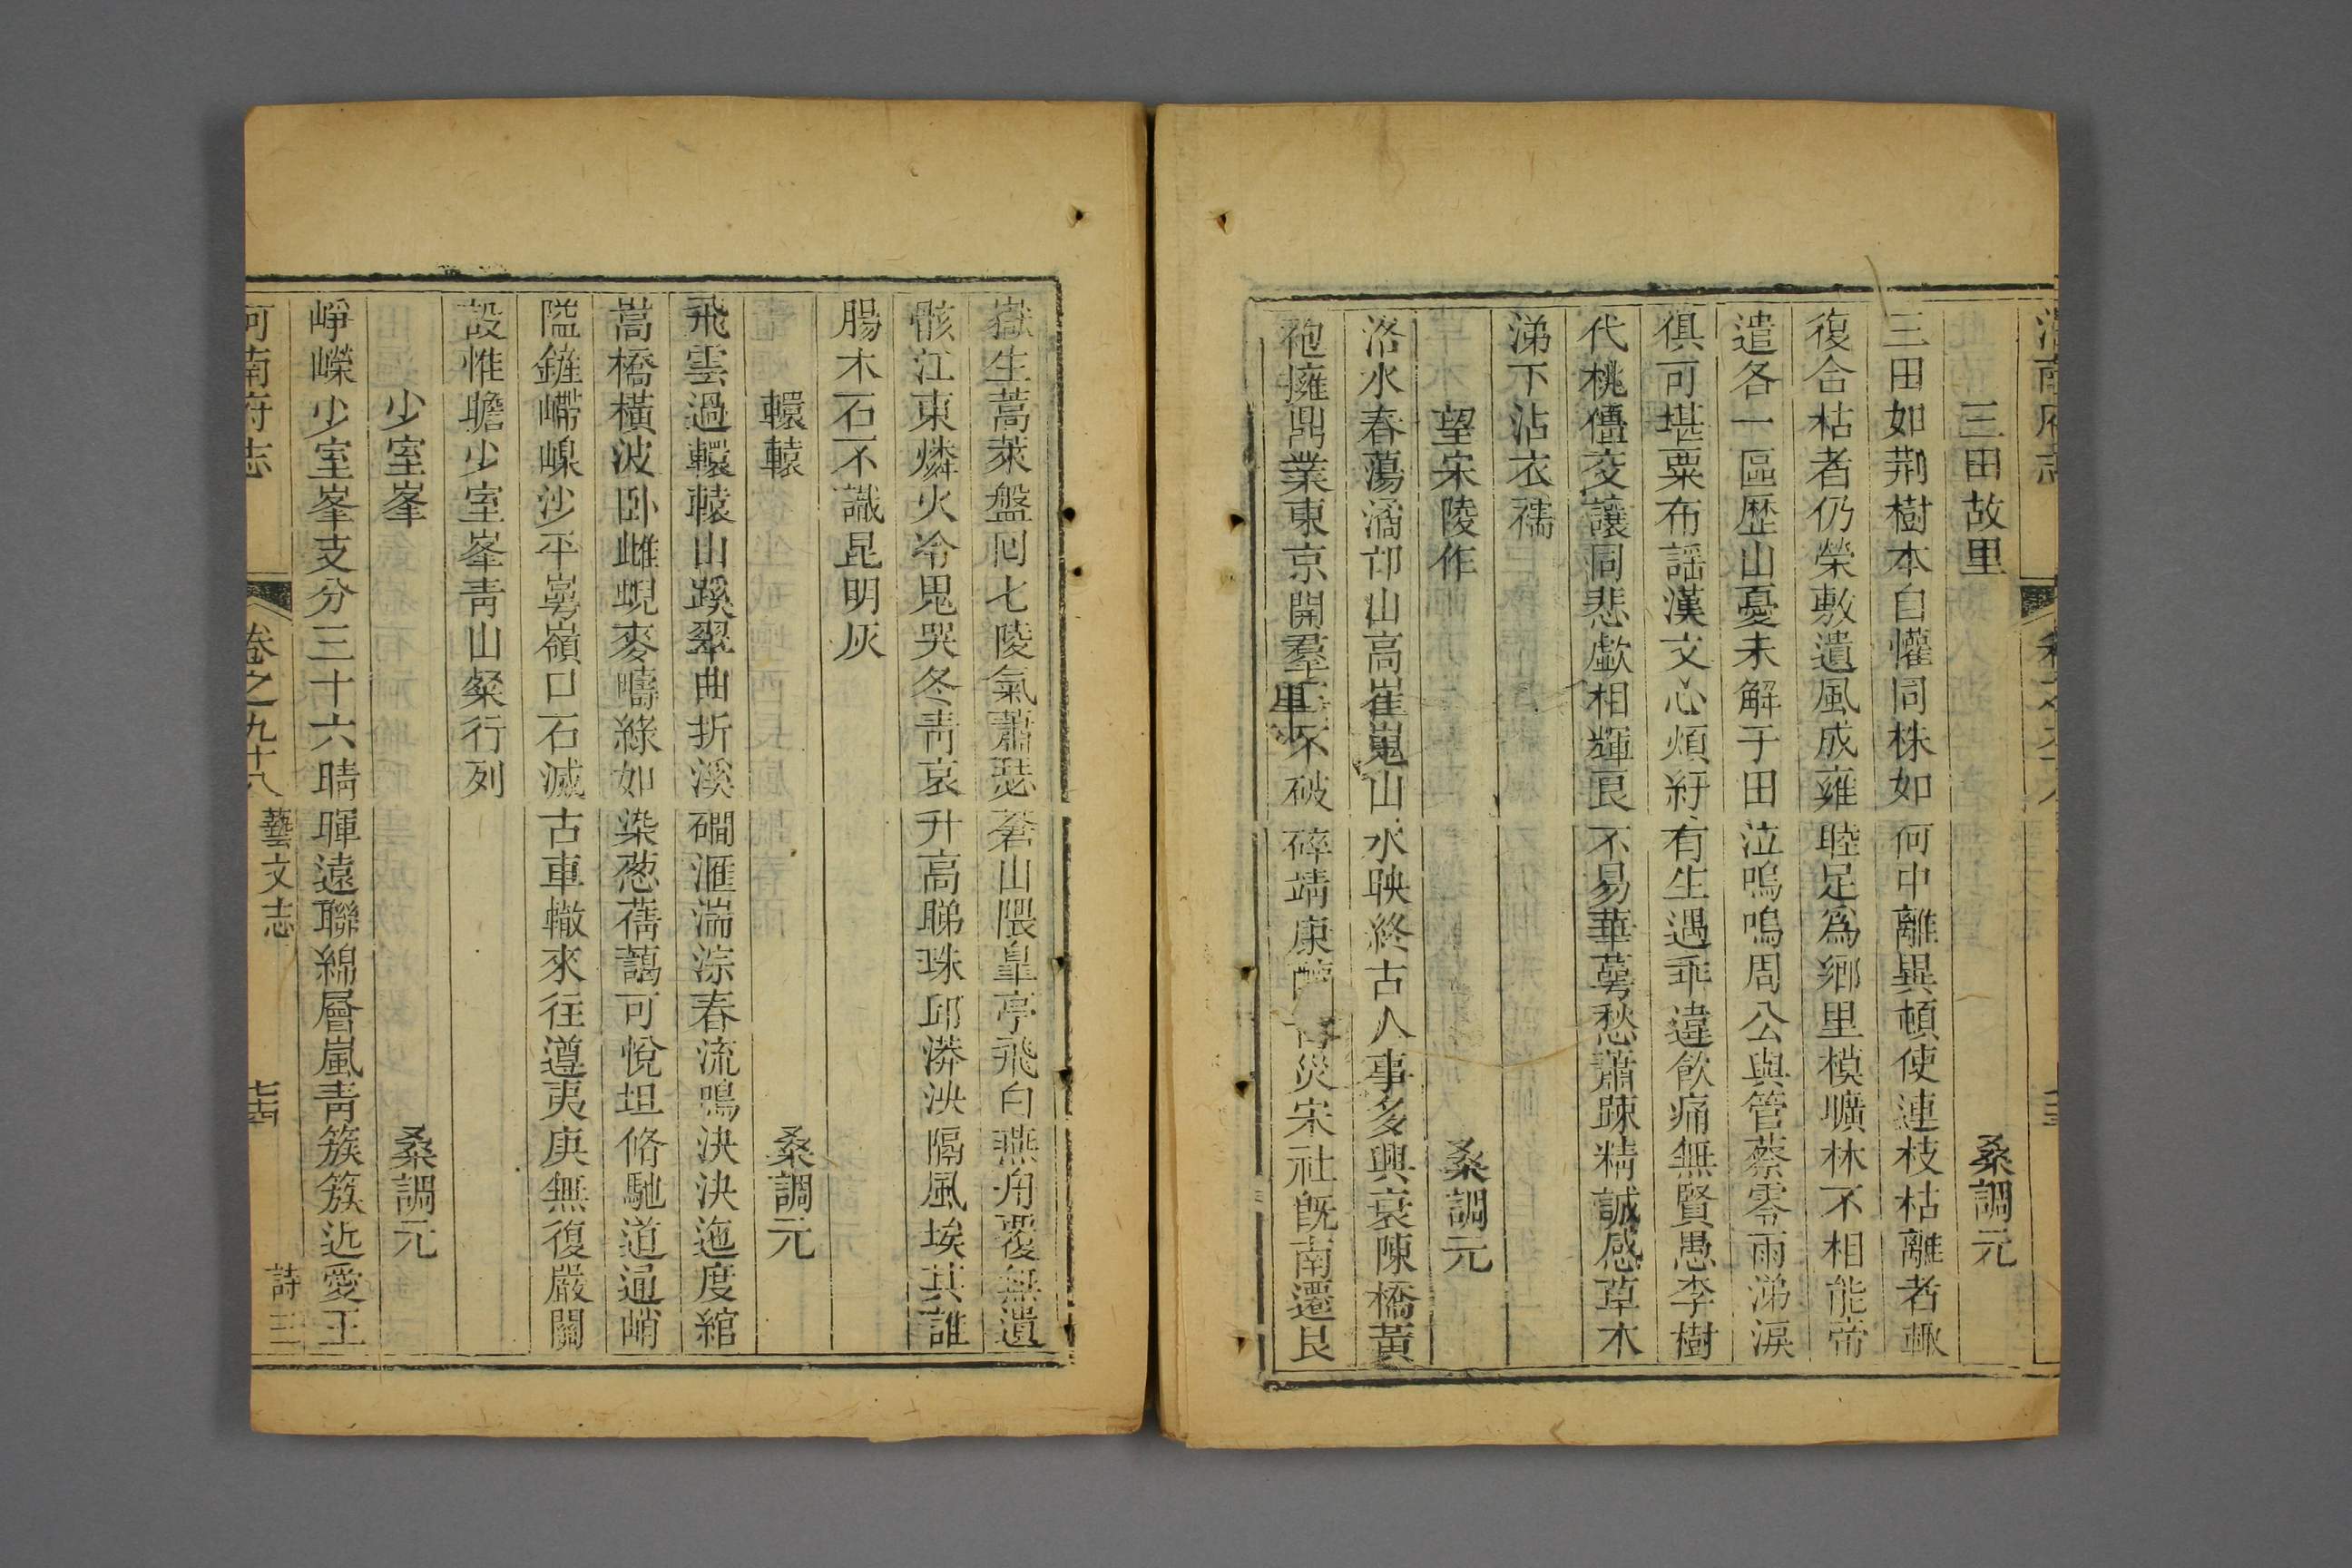 河南府志
三田故里 桑調元
三田如荆樹本自懽同株如何中離異頓使連枝枯離者輙
復合枯者仍榮敷遺風成雍睦足爲鄉里模壙林不相能帝
遣各一區歴山憂未解于田泣嗚嗚周公與管蔡零雨涕淚
俱可堪粟布謡漢文心煩紆有生遇乖違飲痛無賢愚李樹
代桃僵交讓同悲歔相輝艮不易華萼愁蕭踈精誠感草木
涕下沾衣襦
望宋陵作 桑調元
洛水春蕩潏邙山高崔嵬山水映終古人事多興衰陳橋黃
袍擁鼎業東京開羣 不破碎靖康 災宋社旣南遷艮
嶽生蒿萊盤回七陵氣蕭瑟蒼山隈皐亭飛白燕舟覆無遺
骸江東燐火冷鬼哭冬靑哀升高睇珠邱漭泱隔風埃其誰
腸木石不識昆明灰
轘轅 桑調元
飛雲過轘轅山蹊翠曲折溪磵滙湍淙春流鳴決決迤度綰
嵩橋橫波卧雌蜺麥疇綠如染葱蒨藹可悅坦脩馳道通峭
隘鏟嵽嵲沙平崿嶺口石滅古車轍來往遵夷庚無復嚴關
設惟瞻少室峯靑山粲行列
少室峯 桑調元
崢嶸少室峯支分三十六晴暉遠聯綿層嵐靑簇簇近愛玉
河南府志 卷之九十八 藝文志 詩三